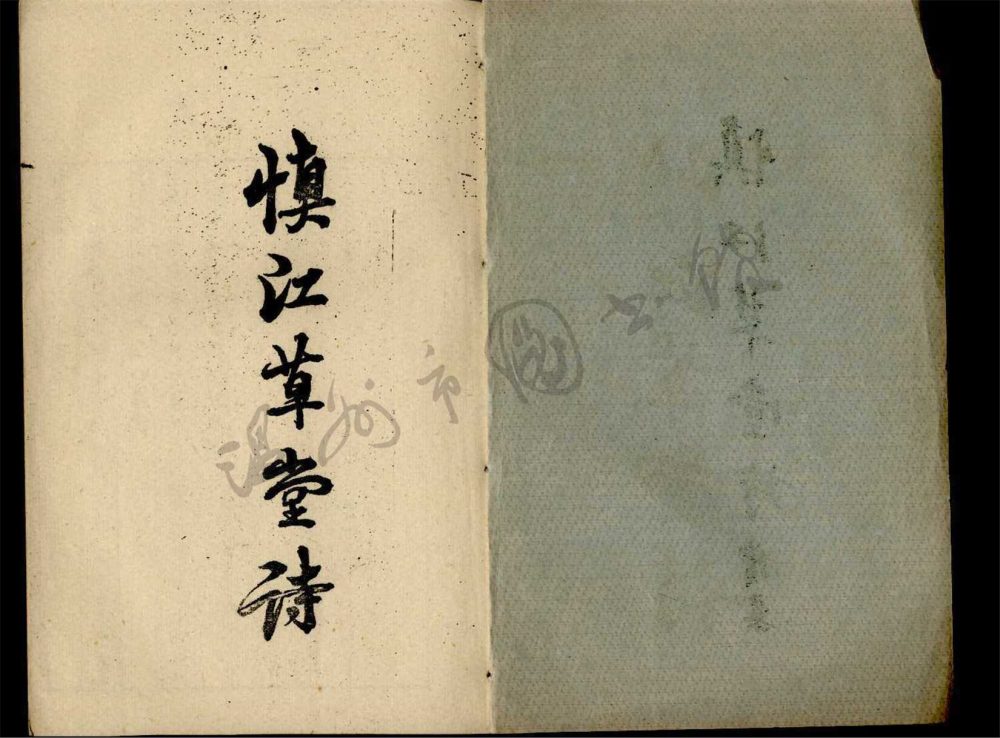 慎江草堂诗
温州市图书馆